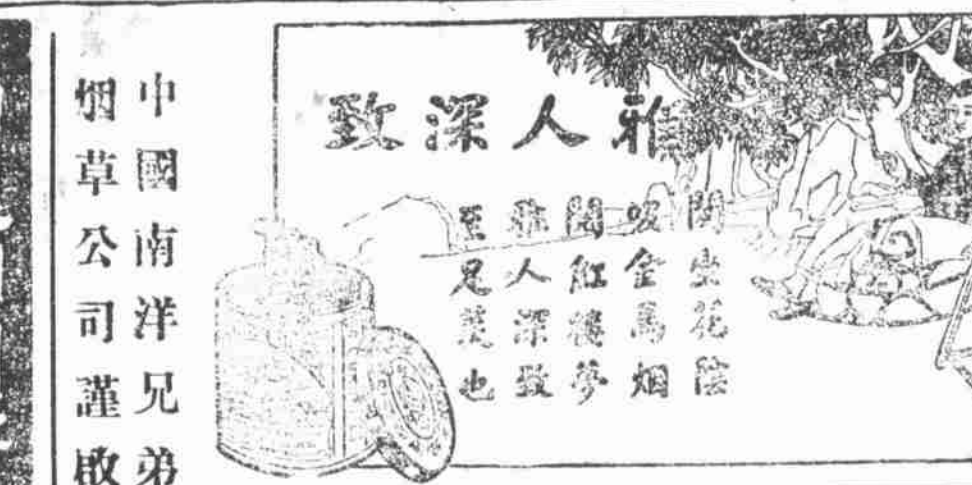 雅人深致
閒坐花陰
吸金馬烟
閱紅樓夢
雅人深致
至足羨也
中國南洋兄弟
烟草公司謹啟